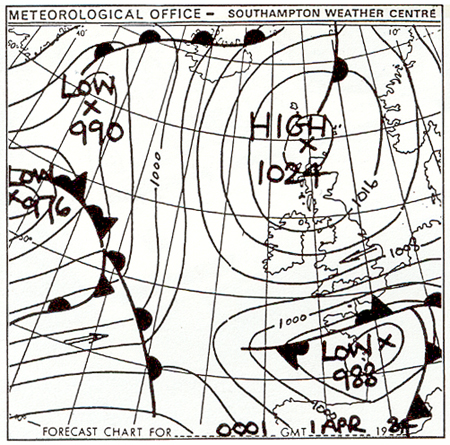 METEOROLOGICAL OFFICE – SOUTHAMPTON WEATHER CENTRÉ
10°
LOW
×
990
HIGH
×
1024
1000
1016
LOW
×976
1008
1000
LOW ×
988
FORECAST CHART FOR 0001 GMT 1 APR 1984